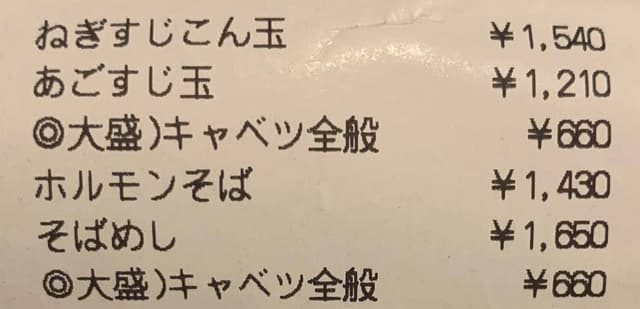 ねぎすじこん玉 ¥1,540
あごすじ玉 ¥1,210
◎大盛)キャベツ全般 ¥660
ホルモンそば ¥1,430
そばめし ¥1,650
◎大盛)キャベツ全般 ¥660